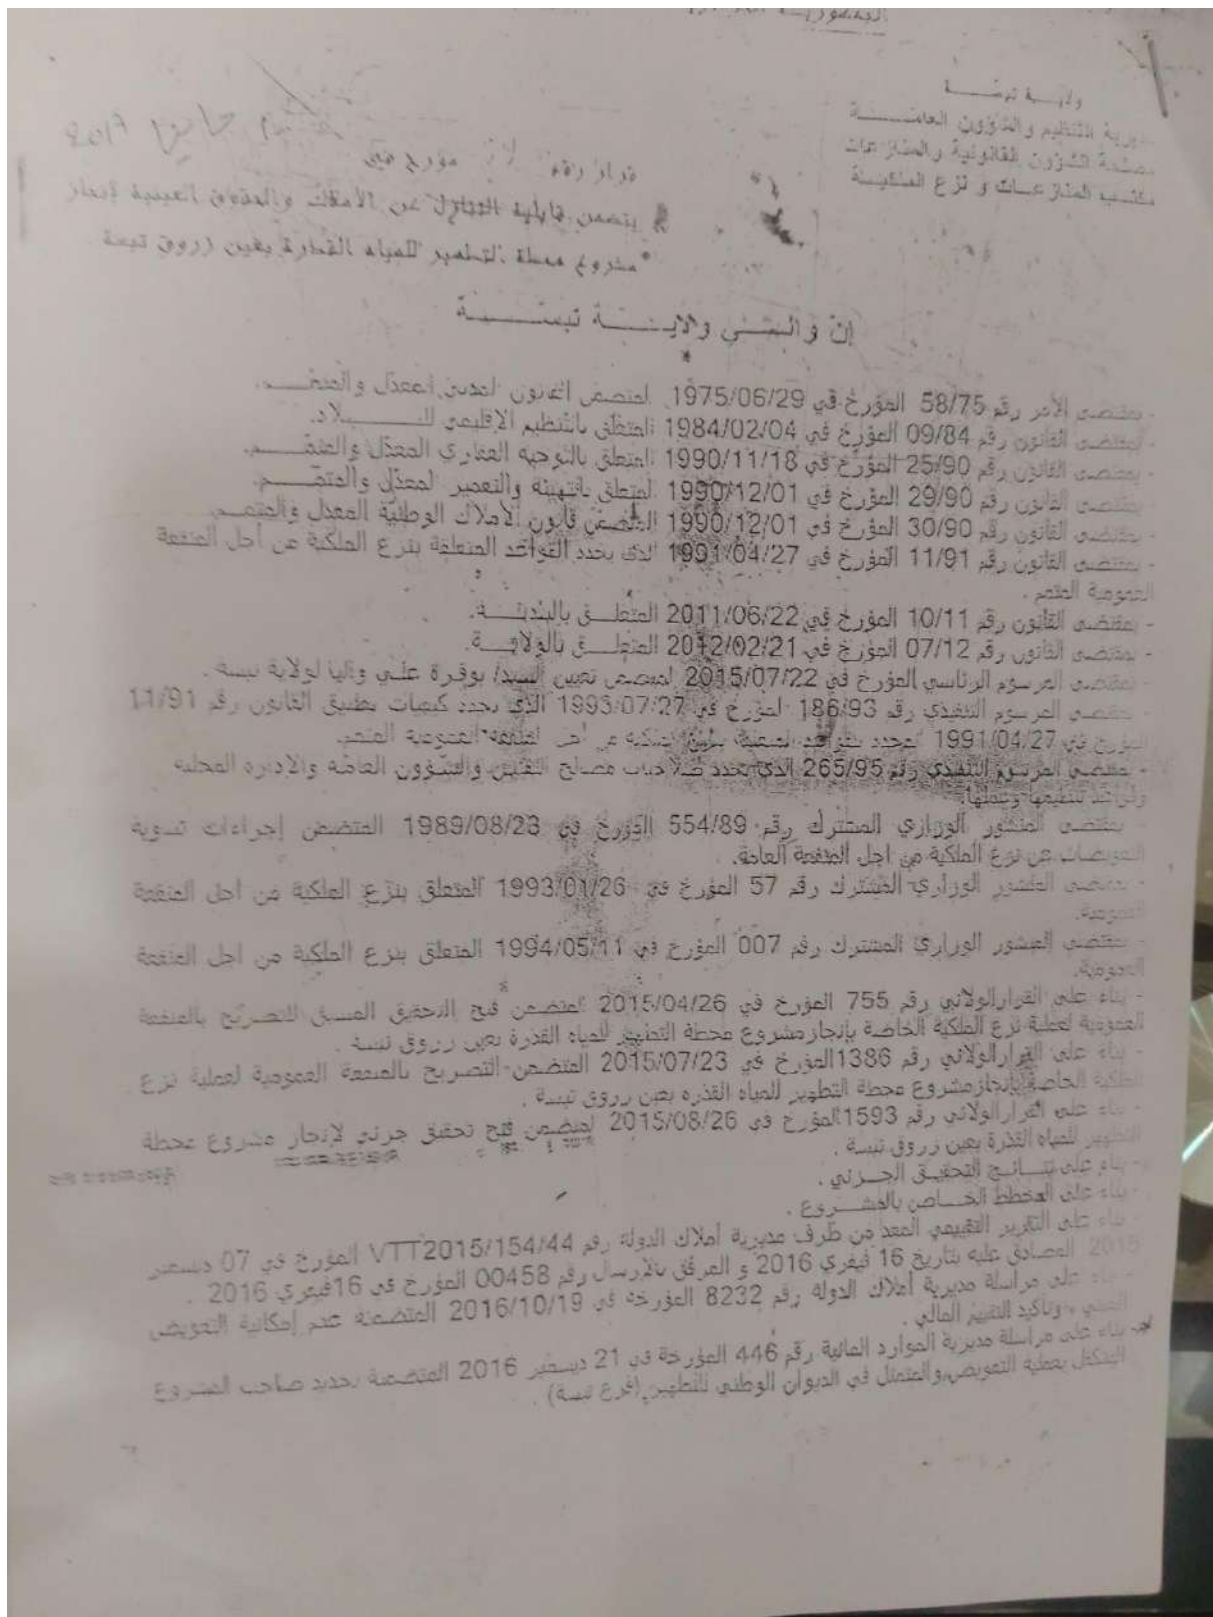 ولايـــة تبســـة
مديرية التنظيم والشؤون العامـــة
مصلحة الشؤون القانونية والمنازعات
مكتب المنازعات و نزع الملكيـة
قرار رقم مؤرخ في جانفي 2017
يتضمن قابلية التنازل عن الأملاك والحقوق العينية لإنجاز
مشروع محطة التطهير للمياه القذرة بعين زروق تبسة
إنّ والـــي ولايـــة تبســـة
- بمقتضى الأمر رقم 58/75 المؤرخ في 1975/06/29 المتضمن القانون المدني المعدّل والمتمّـــم.
- بمقتضى القانون رقم 09/84 المؤرخ في 1984/02/04 المتعلّق بالتنظيم الإقليمي للـــبـــلاد.
- بمقتضى القانون رقم 25/90 المؤرخ في 1990/11/18 المتعلق بالتوجيه العقاري المعدّل والمتمّـــم.
- بمقتضى القانون رقم 29/90 المؤرخ في 1990/12/01 المتعلق بالتهيئة والتعمير المعدّل والمتمّـــم.
- بمقتضى القانون رقم 30/90 المؤرخ في 1990/12/01 المتضمن قانون الأملاك الوطنيّة المعدل والمتمـــم.
- بمقتضى القانون رقم 11/91 المؤرخ في 1991/04/27 الذي يحدد القواعد المتعلقة بنزع الملكية من أجل المنفعة
العمومية المتمم .
- بمقتضى القانون رقم 10/11 المؤرخ في 2011/06/22 المتعلـــق بالبلديـــة.
- بمقتضى القانون رقم 07/12 المؤرخ في 2012/02/21 المتعلـــق بالولايـــة.
- بمقتضى المرسوم الرئاسي المؤرخ في 2015/07/22 المتضمن تعيين السيد/ بوقرة علـي واليا لولاية تبسة .
- بمقتضى المرسوم التنفيذي رقم 186/93 المؤرخ في 1993/07/27 الذي يحدد كيفيات تطبيق القانون رقم 11/91
المؤرخ في 1991/04/27 المحدد للقواعد المتعلقة بنزع الملكية من أجل المنفعة العمومية المتمم.
- بمقتضى المرسوم التنفيذي رقم 265/95 الذي يحدد صلاحيات مصالح التقنين والشؤون العامة والإدارة المحلية
وقواعد تنظيمها وعملها.
- بمقتضى المنشور الوزاري المشترك رقم 554/89 المؤرخ في 1989/08/23 المتضمن إجراءات تسوية
التعويضات عن نزع الملكية من اجل المنفعة العامة.
- بمقتضى المنشور الوزاري المشترك رقم 57 المؤرخ في 1993/01/26 المتعلق بنزع الملكية من اجل المنفعة
العمومية.
- بمقتضى المنشور الوزاري المشترك رقم 007 المؤرخ في 1994/05/11 المتعلق بنزع الملكية من اجل المنفعة
العمومية.
- بناء على القرارالولائي رقم 755 المؤرخ في 2015/04/26 المتضمن فتح التحقيق المسبق للتصريح بالمنفعة
العمومية لعملية نزع الملكية الخاصة بإنجازمشروع محطة التطهير للمياه القذرة بعين زروق تبسة .
- بناء على القرارالولائي رقم 1386المؤرخ في 2015/07/23 المتضمن التصريح بالمنفعة العمومية لعملية نزع
الملكية الخاصة بإنجازمشروع محطة التطهير للمياه القذرة بعين زروق تبسة .
- بناء على القرارالولائي رقم 1593المؤرخ في 2015/08/26 المتضمن فتح تحقيق جزئي لإنجاز مشروع محطة
التطهير للمياه القذرة بعين زروق تبسة .
- بناء على نتـــائـج التحقيق الجـــزئي .
- بناء على المخطط الخـــاص بالمشـــروع .
- بناء على التقرير التقييمي المعد من طرف مديرية أملاك الدولة رقم VTT2015/154/44 المؤرخ في 07 ديسمبر
2015 المصادق عليه بتاريخ 16 فيفري 2016 و المرفق بالارسال رقم 00458 المؤرخ في 16فيفري 2016 .
- بناء على مراسلة مديرية أملاك الدولة رقم 8232 المؤرخة في 2016/10/19 المتضمنة عدم إمكانية التعويض
العيني ، وتأكيد التقييم المالي .
- بناء على مراسلة مديرية الموارد المائية رقم 446 المؤرخة في 21 ديسمبر 2016 المتضمنة تحديد صاحب المشروع
المتكفل بعملية التعويض،والمتمثل في الديوان الوطني للتطهير (فرع تبسة) .